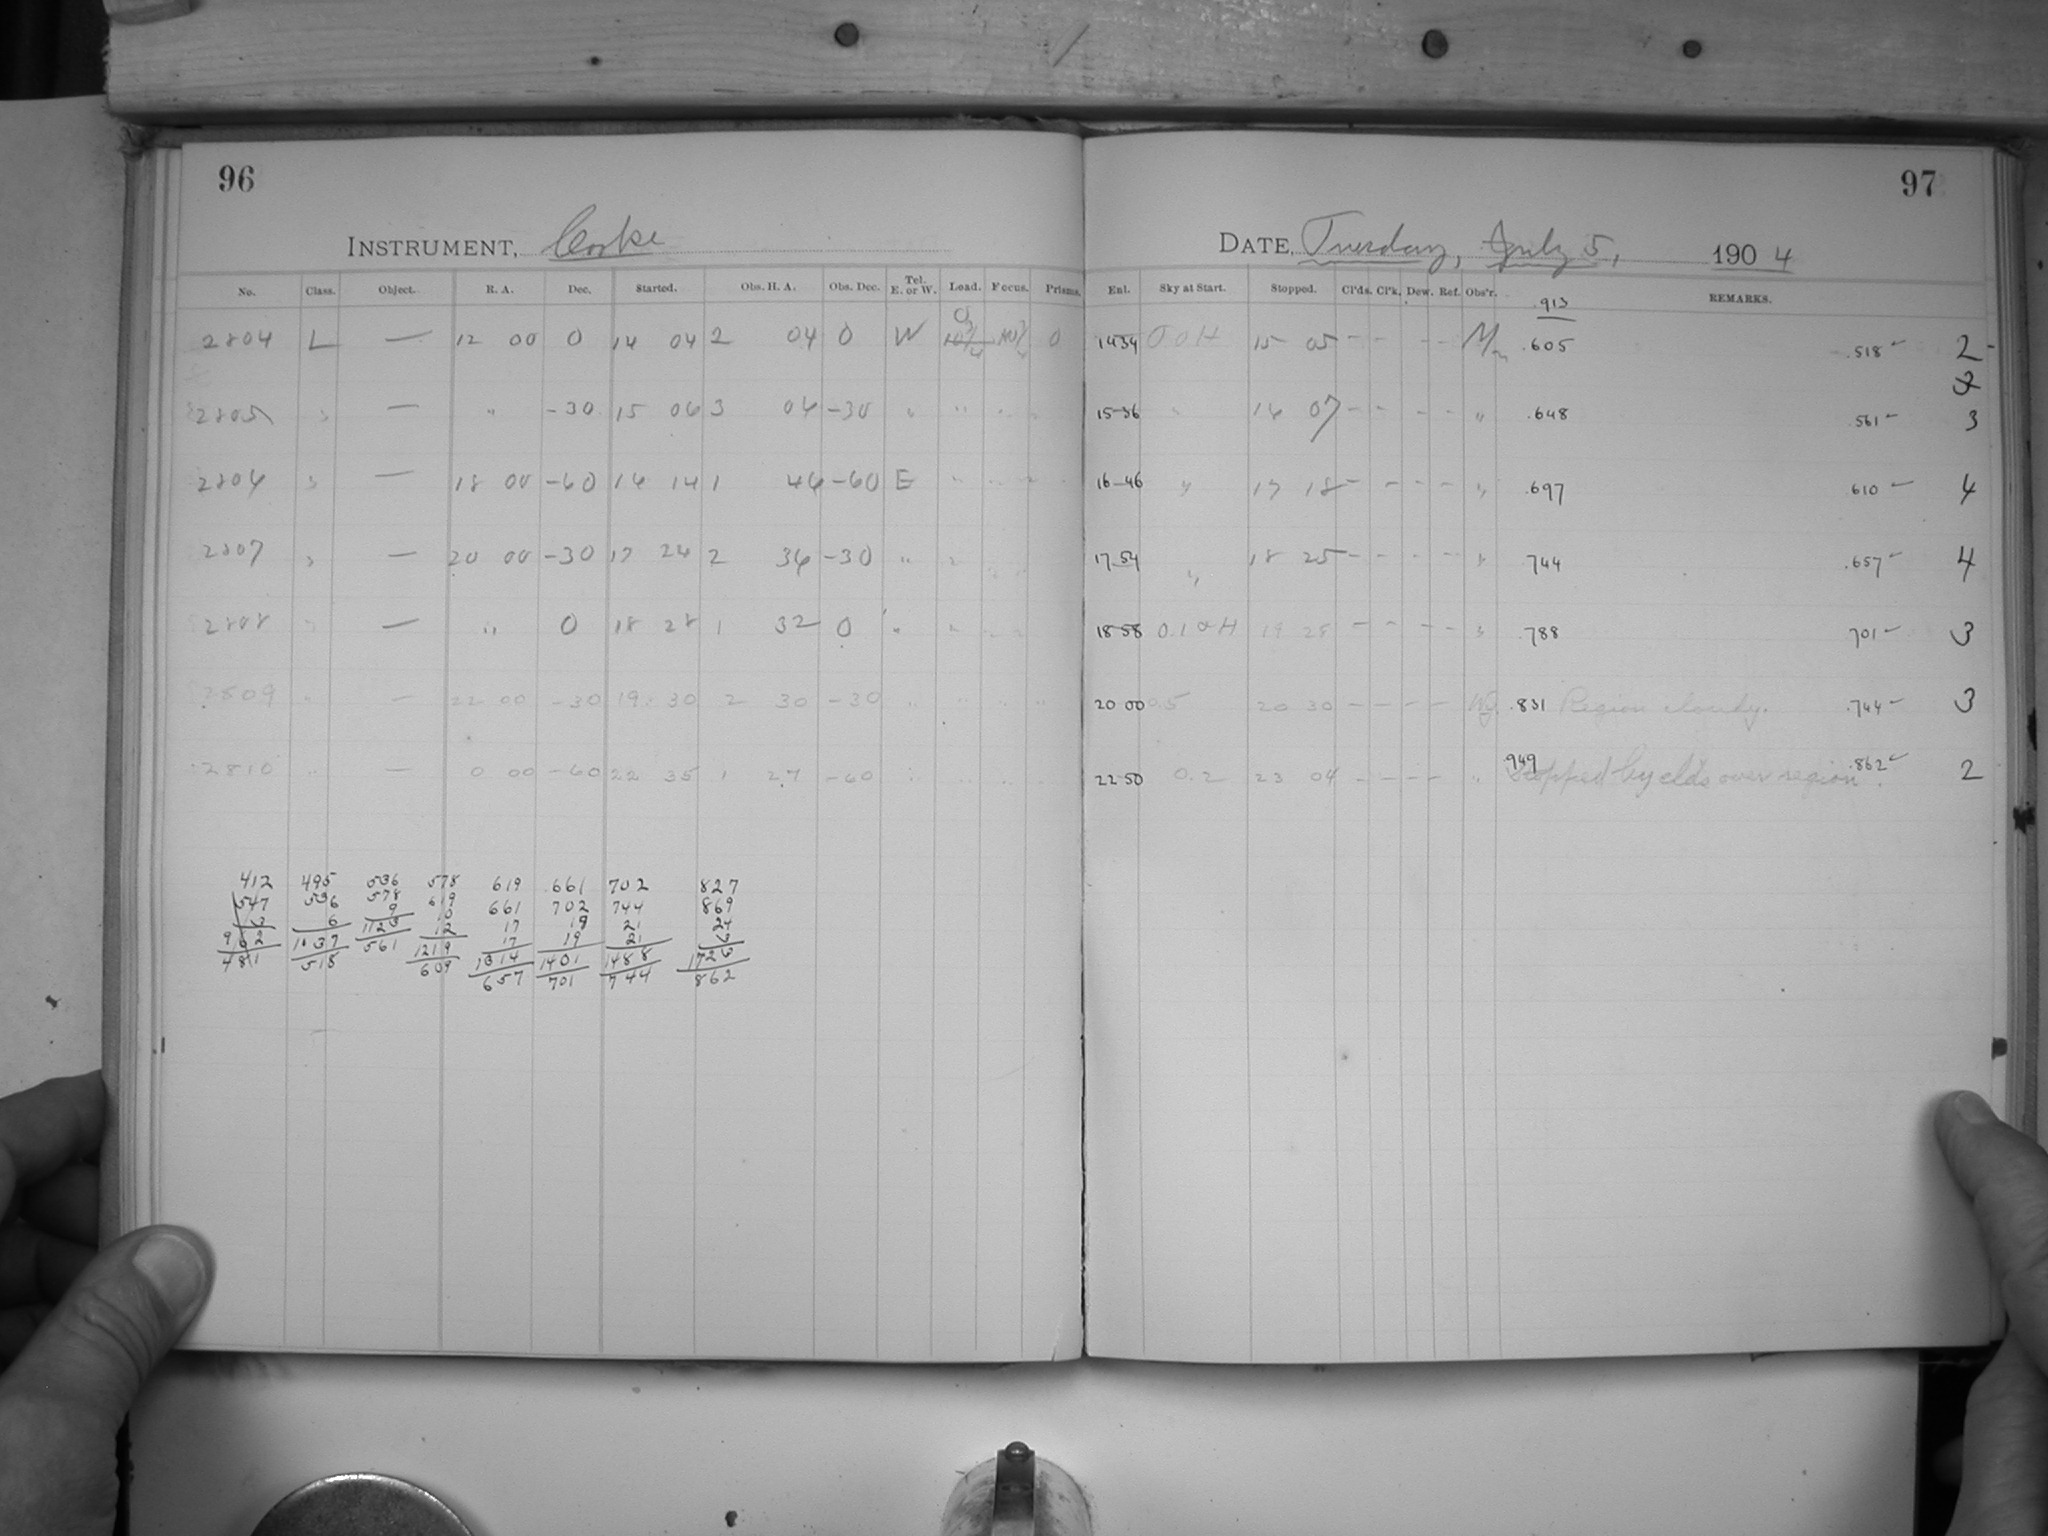 96
97
INSTRUMENT, Cooke
DATE, Tuesday, July 5, 1904
No. Class. Object. R. A. Dec. Started. Obs. H. A. Obs. Dec. Tel. E. or W. Load. Focus. Prisms. Enl. Sky at Start. Stopped. Cl'ds. Cl'k. Dew. Ref. Obs'r. REMARKS.
.913
2804 L — 12 00 0 14 04 2 04 0 W 0 1434 0 0 H 15 05 - - - - M .605 .518 2
2
2805 " — " -30 15 06 3 06 -30 " " " " 15-36 " 16 07 - - - - " .648 .561 3
2806 " — 18 00 -60 16 14 1 46 -60 E " " " " 16-46 " 17 18 - - - - " .697 .610 4
2807 " — 20 00 -30 17 24 2 36 -30 " " " " 17-54 " 18 25 - - - - " 744 .657 4
2808 " — " 0 18 28 1 32 0 " " " " 18-58 0.1 & H 19 28 - - - - " .788 701 3
2809 " — 22 00 -30 19 30 2 30 -30 " " " " 20 00 0.5 20 30 - - - - .831 Region cloudy. .744 3
2810 " — 0 00 -60 22 35 1 27 -60 " " " " 22 50 0.2 23 04 - - - - " 949 Stopped by clds over region. .862 2
412 495 536 578 619 661 702 827
547 536 578 619 661 702 744 869
3 6 9 10 17 19 21 24
962 1037 1123 12 17 19 21 6
481 518 561 1219 1314 1401 1488 1726
609 657 701 744 862